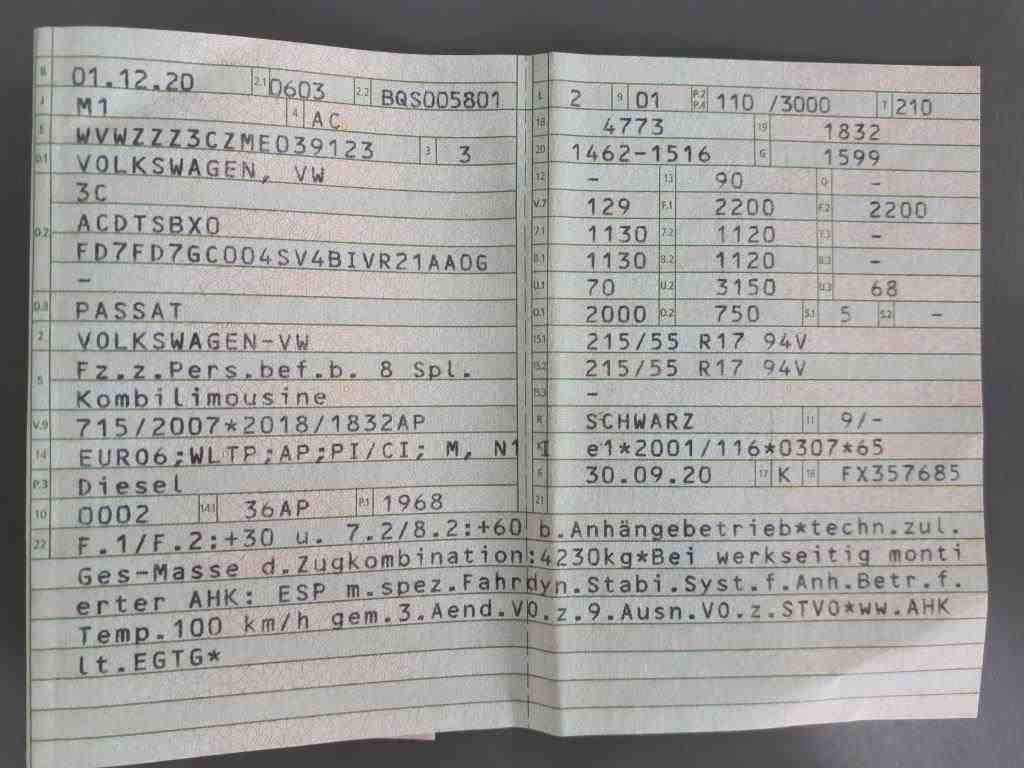 B 01.12.20 2.1 0603 2.2 BQS005801
J M1 4 AC
E WVWZZZ3CZME039123 3 3
D.1 VOLKSWAGEN, VW
3C
D.2 ACDTSBX0
FD7FD7GC004SV4BIVR21AA0G
–
D.3 PASSAT
2 VOLKSWAGEN-VW
5 Fz.z.Pers.bef.b. 8 Spl.
Kombilimousine
V.9 715/2007*2018/1832AP
14 EURO6;WLTP;AP;PI/CI; M, N1 I
P.3 Diesel
10 0002 14.1 36AP P.1 1968
L 2 9 01 P.2 P.4 110 /3000 T 210
18 4773 19 1832
20 1462-1516 G 1599
12 – 13 90 Q –
V.7 129 F.1 2200 F.2 2200
7.1 1130 7.2 1120 7.3 –
8.1 1130 8.2 1120 8.3 –
U.1 70 U.2 3150 U.3 68
O.1 2000 O.2 750 S.1 5 S.2 –
15.1 215/55 R17 94V
15.2 215/55 R17 94V
15.3 –
R SCHWARZ 11 9/-
K e1*2001/116*0307*65
6 30.09.20 17 K 16 FX357685
21
22 F.1/F.2:+30 u. 7.2/8.2:+60 b.Anhängebetrieb*techn.zul.
Ges-Masse d.Zugkombination:4230kg*Bei werkseitig monti
erter AHK: ESP m.spez.Fahrdyn.Stabi.Syst.f.Anh.Betr.f.
Temp.100 km/h gem.3.Aend.VO.z.9.Ausn.VO.z.STVO*ww.AHK
lt.EGTG*